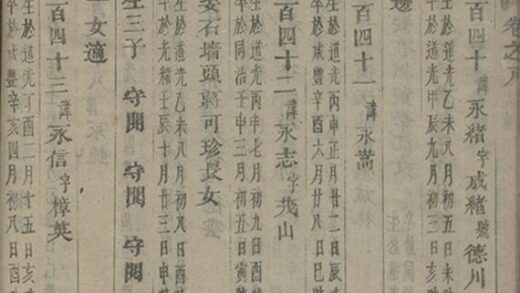 卷之八
百四十諱永緒字成緒號德川
生於道光乙未八月初五日未
卒於道光甲辰九月初三日亥
百四十一諱永嵩
生於道光丙申正月廿二日辰
卒於咸豐辛酉六月廿八日巳
百四十二諱永志字茂山
生於道光丙申七月初九日酉
於同治壬申月初五日寅
娶石墻頭蔣可珍長女
生於道光乙未八月初八日
卒於光緒壬辰十月廿三日申
生三子 守開 守聞 守
一女適
百四十三諱永信字樟英
生於道光丁酉二月十五日亥
卒於咸豐辛亥四月初八日酉